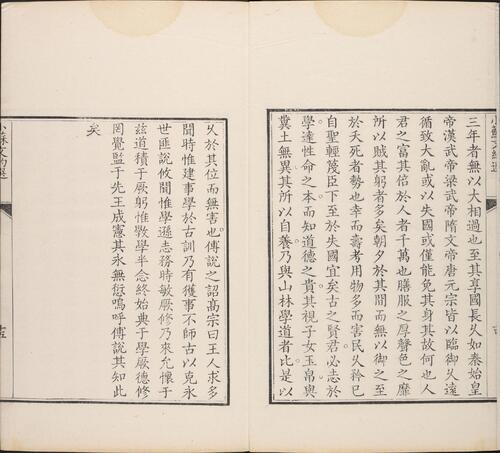 三年者無以大相過也至其享國長乆如秦始皇
帝漢武帝梁武帝隋文帝唐元宗皆以臨御乆遠
循致大亂或以失國或僅能免其身其故何也人
君之富其倍於人者千萬也膳服之厚聲色之靡
所以賊其躬者多矣朝夕於其間而無以御之至
於夭死者勢也幸而壽考用物多而害民乆矜已
自聖輕蔑臣下至於失國宜矣古之賢君必志於
學達性命之本而知道德之貴其視子女玉帛與
糞土無異其所以自養乃與山林學道者比是以
乆於其位而無害也傅說之詔高宗曰王人求多
聞時惟建事學於古訓乃有獲事不師古以克永
世匪說攸聞惟學遜志務時敏厥修乃來允懷于
兹道積于厥躬惟斆學半念終始典于學厥德修
罔覺監于先王成憲其永無愆嗚呼傅說其知此
矣